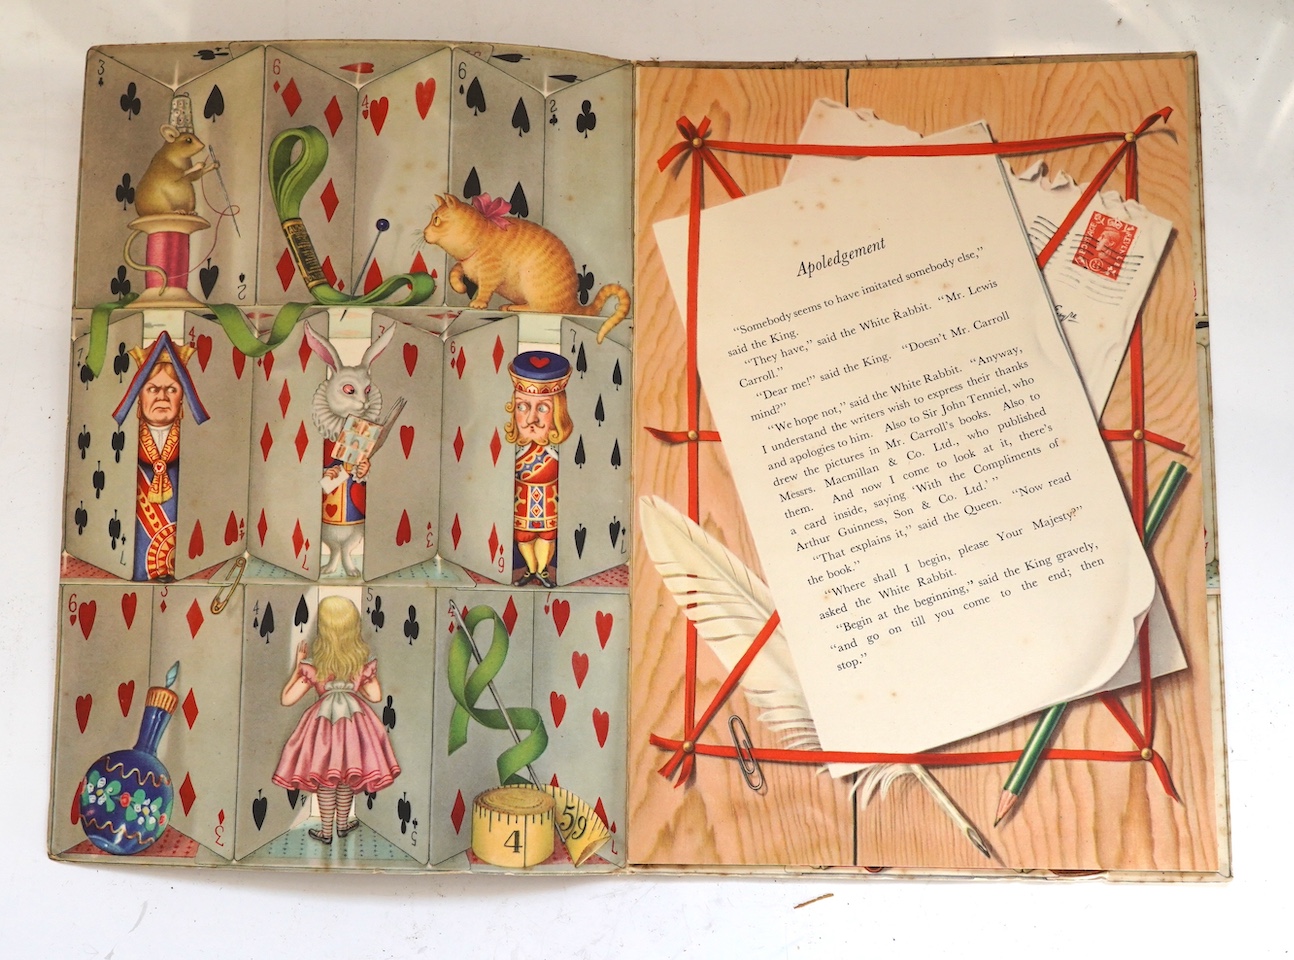 3
6
4
6
2
2
4
7
6
7
7
3
9
7
6
3
4
5
4
7
3
4
5
4
59
7
Apoledgement
“Somebody seems to have imitated somebody else,”
said the King.
“They have,” said the White Rabbit. “Mr. Lewis
Carroll.”
“Dear me!” said the King. “Doesn’t Mr. Carroll
mind?”
“We hope not,” said the White Rabbit. “Anyway,
I understand the writers wish to express their thanks
and apologies to him. Also to Sir John Tenniel, who
drew the pictures in Mr. Carroll’s books. Also to
Messrs. Macmillan & Co. Ltd., who published
them. And now I come to look at it, there’s
a card inside, saying ‘With the Compliments of
Arthur Guinness, Son & Co. Ltd.’ ”
“That explains it,” said the Queen. “Now read
the book.”
“Where shall I begin, please Your Majesty?”
asked the White Rabbit.
“Begin at the beginning,” said the King gravely,
“and go on till you come to the end; then
stop.”